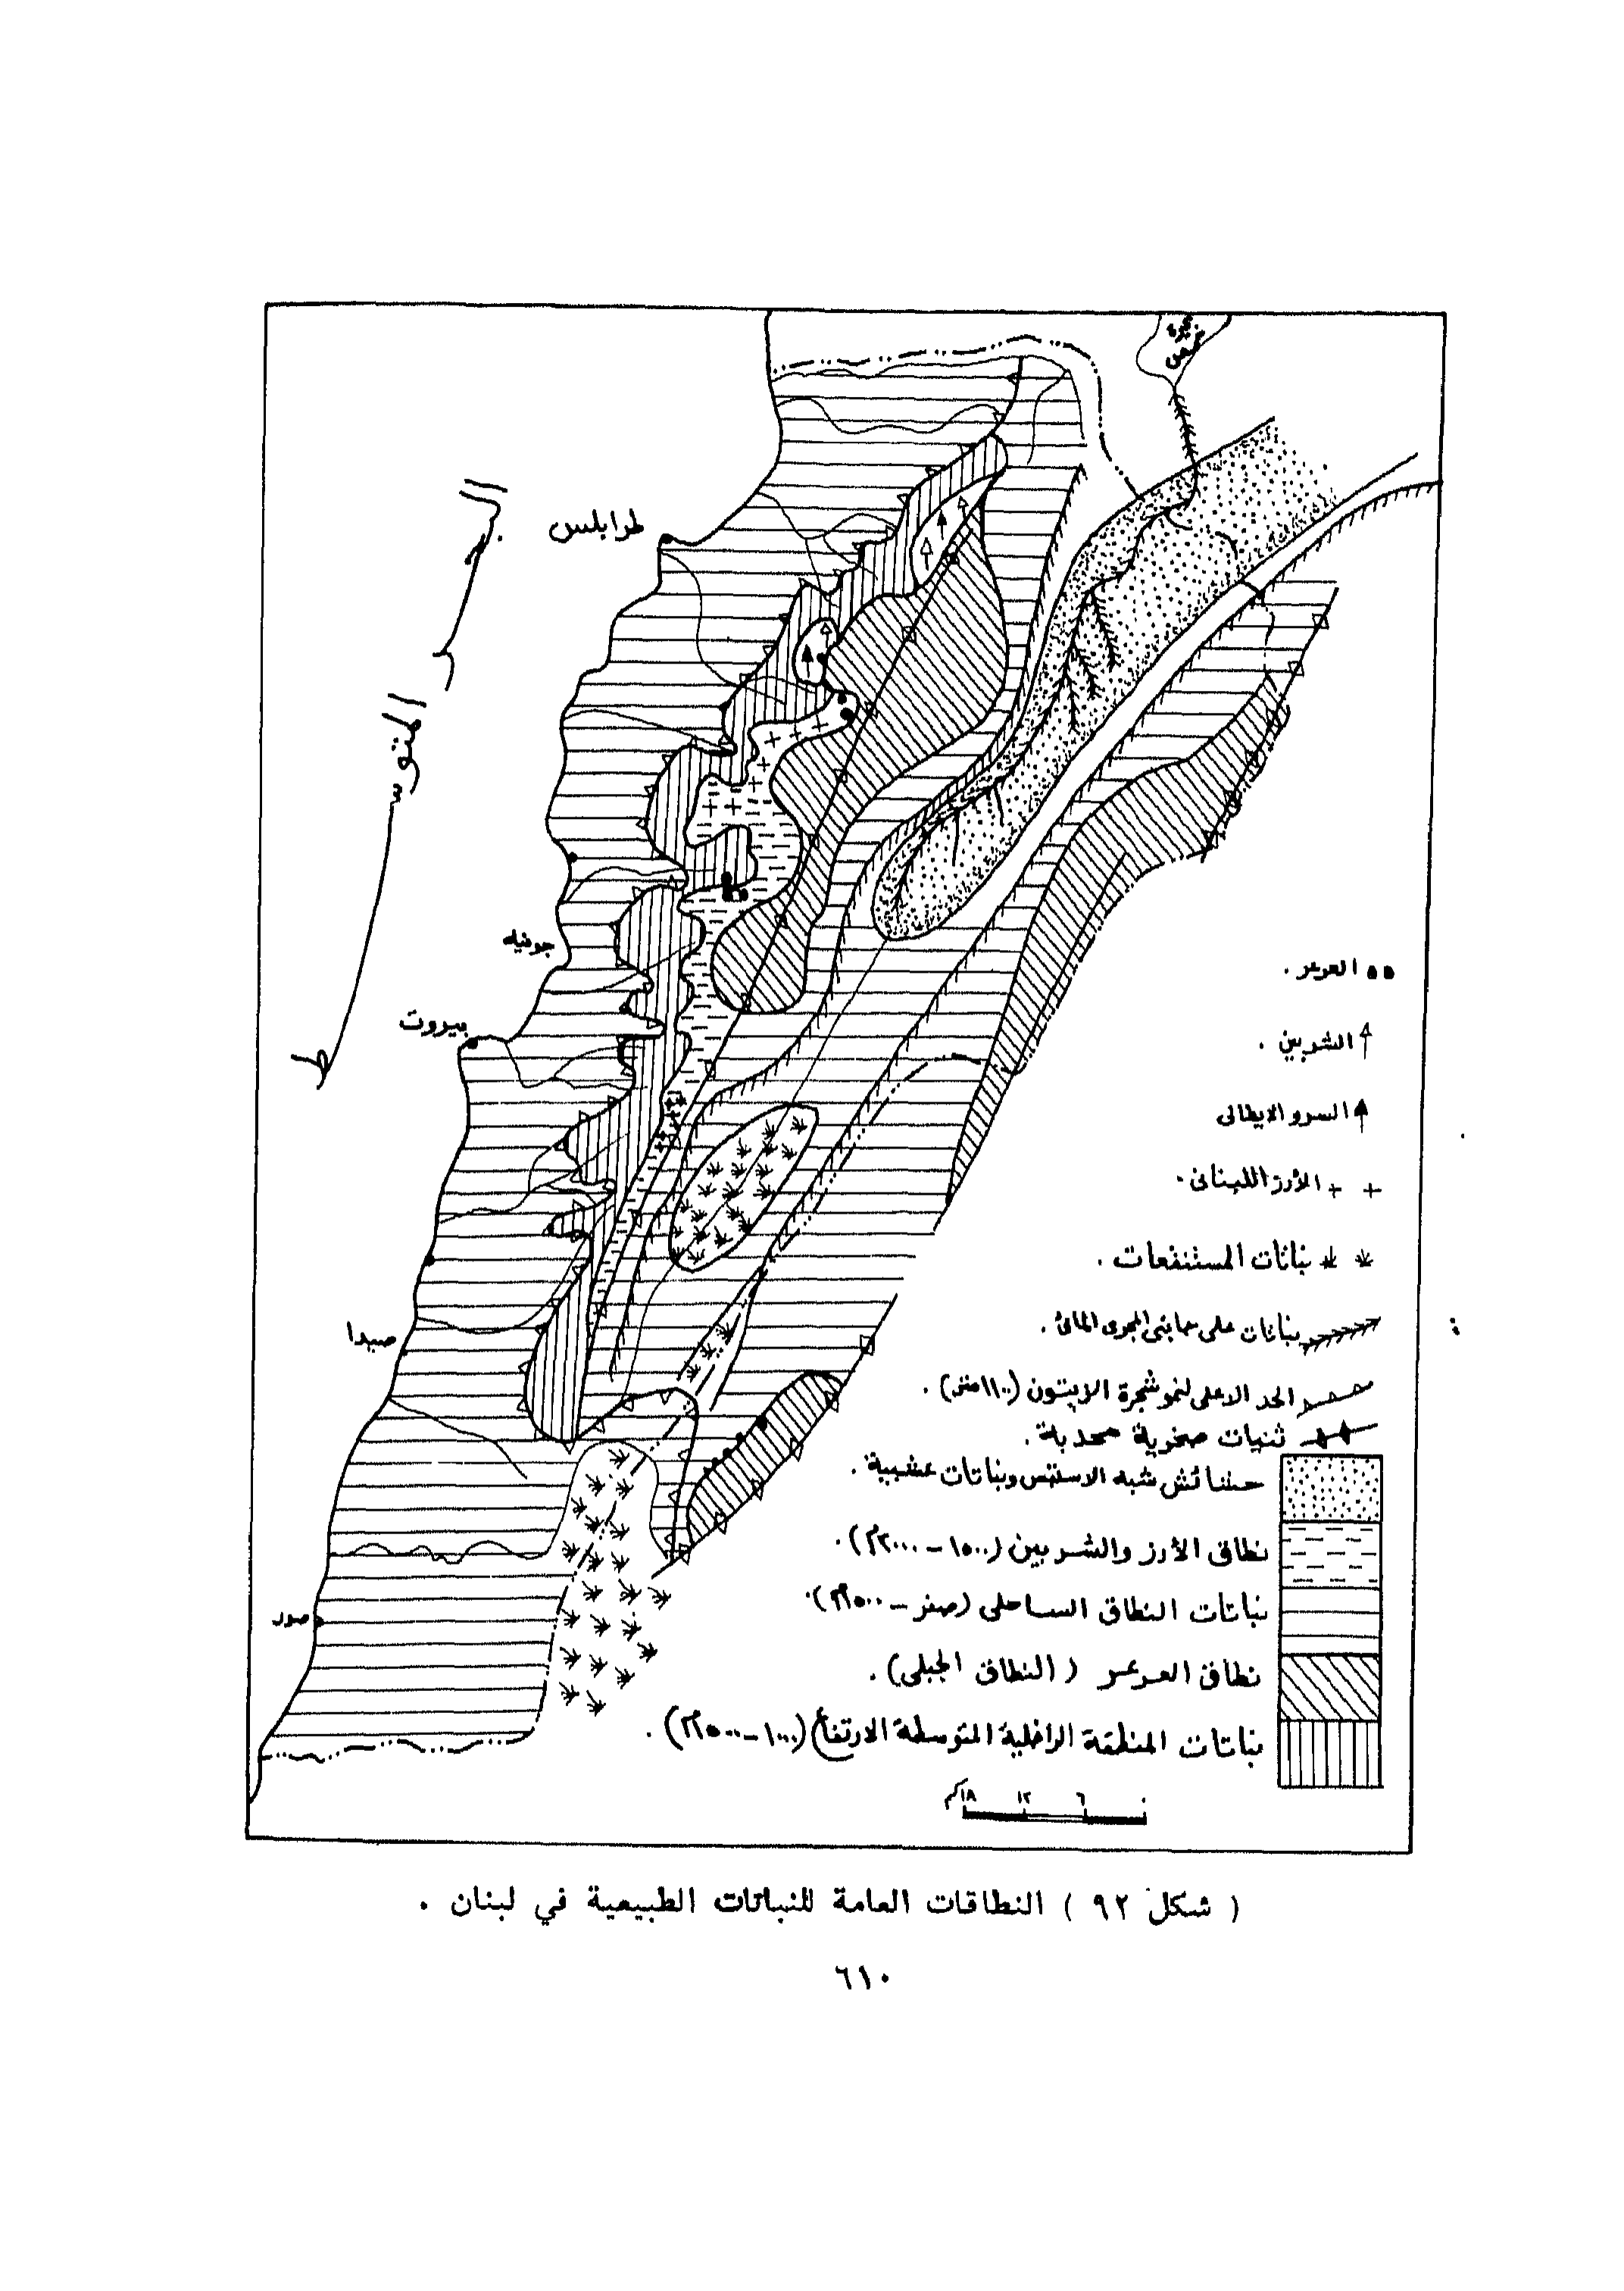 بحيرة حمص
البحر المتوسط
طرابلس
جونيه
بيروت
صيدا
صور
العرعر .
الشربين .
السرو الايطالى
الأرز اللبنانى .
نباتات المستنقعات .
نباتات على جانبى المجرى المائى .
الحد الاعلى لنمو شجرة الزيتون (١١٠٠متر) .
ثنيات صخرية محدبة .
حشائش شبه الاستبس ونباتات عشبية .
نطاق الأرز والشربين (١٥٠٠ – ٢٠٠٠م) .
نباتات النطاق الساحلى (صفر – ٥٠٠م) .
نطاق العرعر ( النطاق الجبلى) .
نباتات المنطقة الداخلية المتوسطة الارتفاع (١٠٠٠–١٥٠٠م) .
١٨كم ١٢ ٦ ٠
( شكل ٩٢ ) النطاقات العامة للنباتات الطبيعية في لبنان .
٦١٠